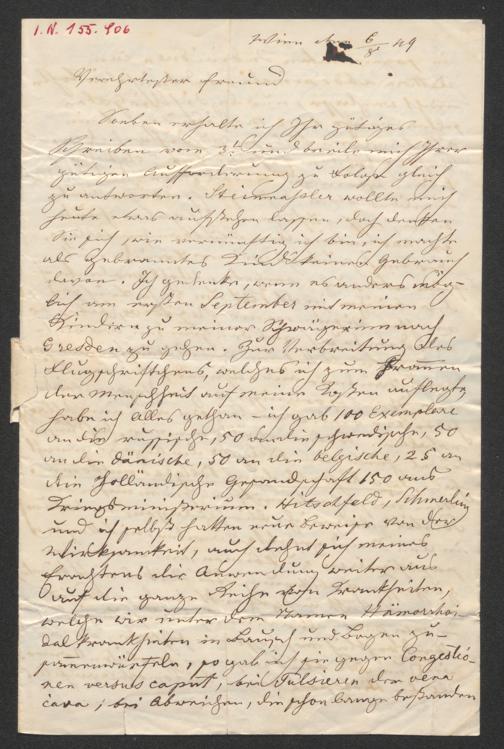 I. N. 155.906
Wien den 6/8 49
Verehrtester Freund
Soeben erhalte ich Ihr gütiges
Schreiben vom 3t und beeile mich Ihrer
gütigen Aufforderung zu Folge gleich
zu antworten. wollte mich
heute etwas aufstehen lassen, doch denken
Sie sich, wie vernünftig ich bin, ich machte
als gebranntes Kind keinen Gebrauch
davon. Ich gedenke, wenn es anders mög-
lich am ersten September mit meinen
Kindern zu meiner Schwägerinn nach
Dresden zu gehen. Zur Verbreitung des
Flugschriftchens, welches ich zum
der Menschheit auf meine Kosten auflegte,
habe ich Alles gethan – ich gab 100 Exemplare
an die russische, 50 an die schwedische, 50
an die dänische, 50 an die belgische, 25 an
die Holländische Gesandschaft 150 ans
Kriegsministerium. Schmerling
und ich selbst hatten neue Beweise von der
Wirksamkeit, auch dehnt sich meines
Erachtens die Anwendung weiter aus
auf die ganze Reihe von Krankheiten,
welche wir unter dem Namen Hämorrhoi-
dalkrankheiten in Bausch und Bogen zu-
sammenwürfeln, so gab ich sie gegen Congestio-
nen versus caput, bei Pulsieren der vena
cava, bei Abweichen, die schon lange bestanden